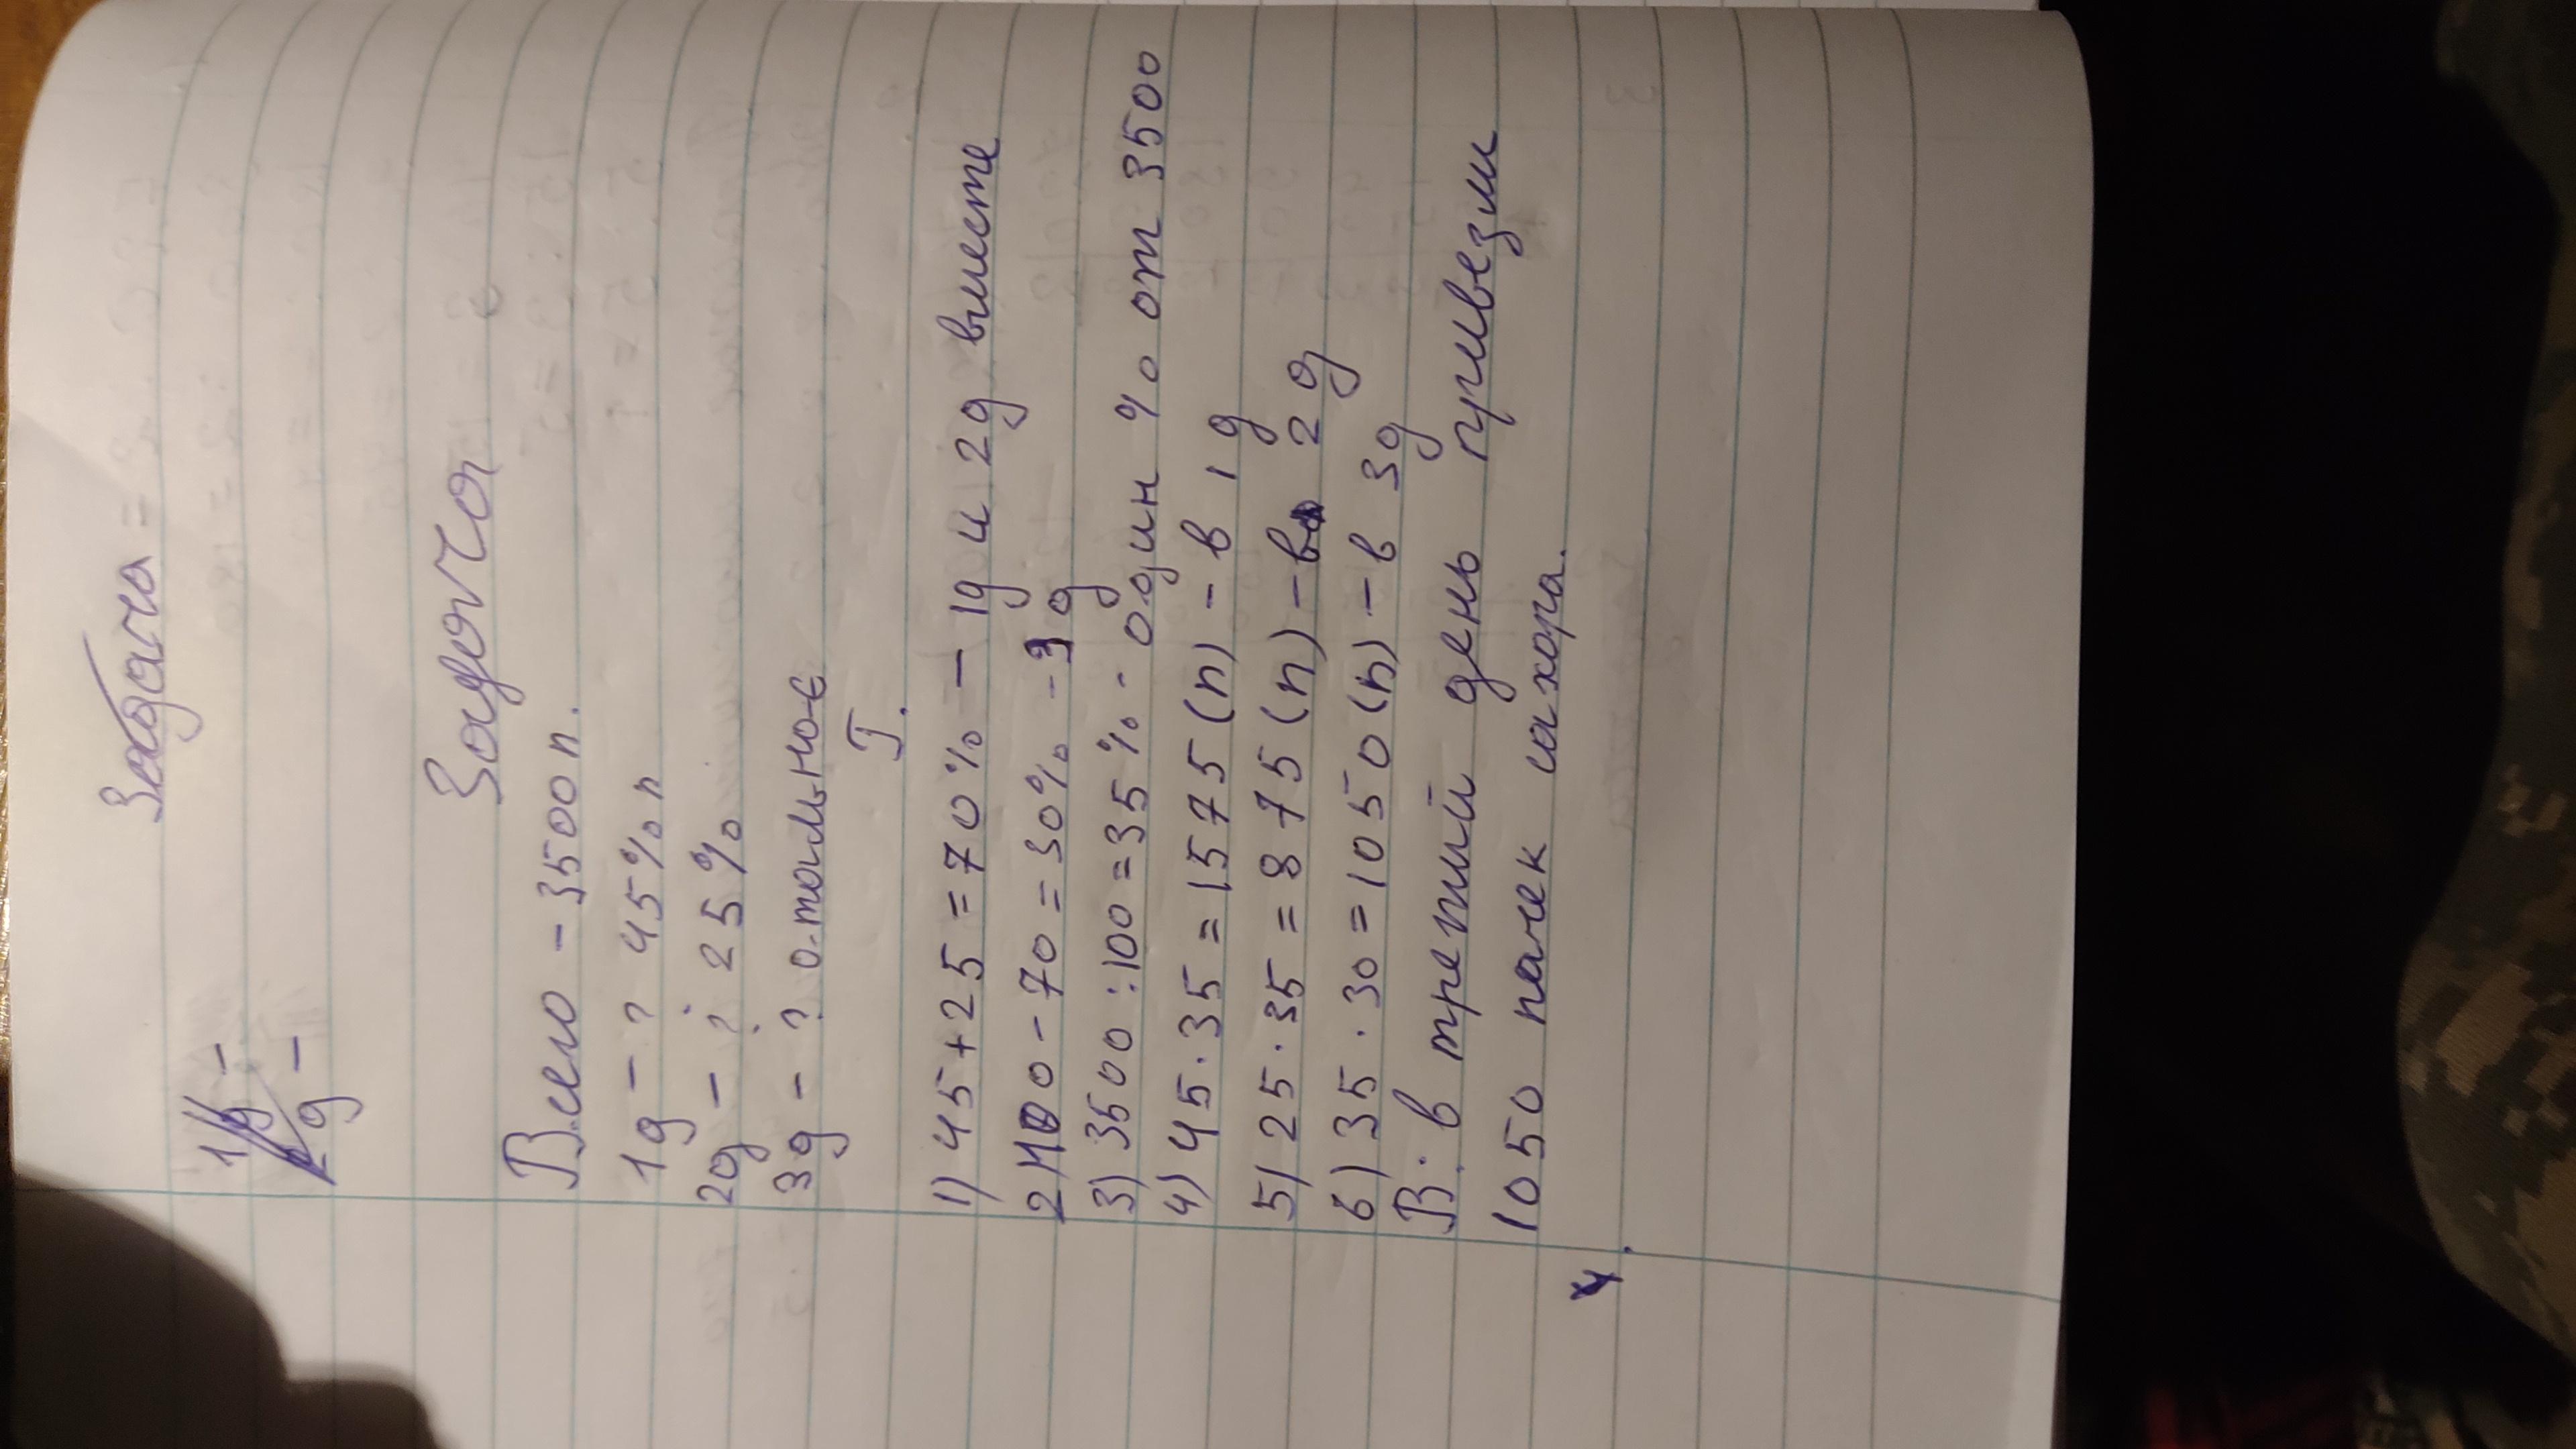 Задача
1д -
2д -
Задача
Всего - 3500 п.
1д - ? 45% п
2д - ? 25%
3д - ? остальное
I.
1) 45+25=70% - 1д и 2д вместе
2) 100-70=30% - 3 д
3) 3500:100=35% - один % от 3500
4) 45·35=1575(п) - в 1 д
5) 25·35=875(п) - во 2 д
6) 35·30=1050(п) - в 3д
В: в третий день привезли
1050 пачек сахара.